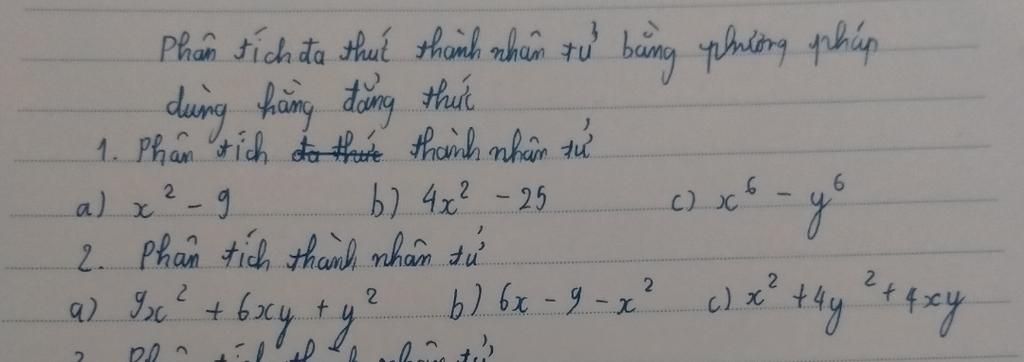 Phân tích đa thức thành nhân tử bằng phương pháp
dùng hằng đẳng thức
1. Phân tích đa thức thành nhân tử
a) x² - 9 b) 4x² - 25 c) x⁶ - y⁶
2. Phân tích thành nhân tử
a) 9x² + 6xy + y² b) 6x - 9 - x² c) x² + 4y² + 4xy